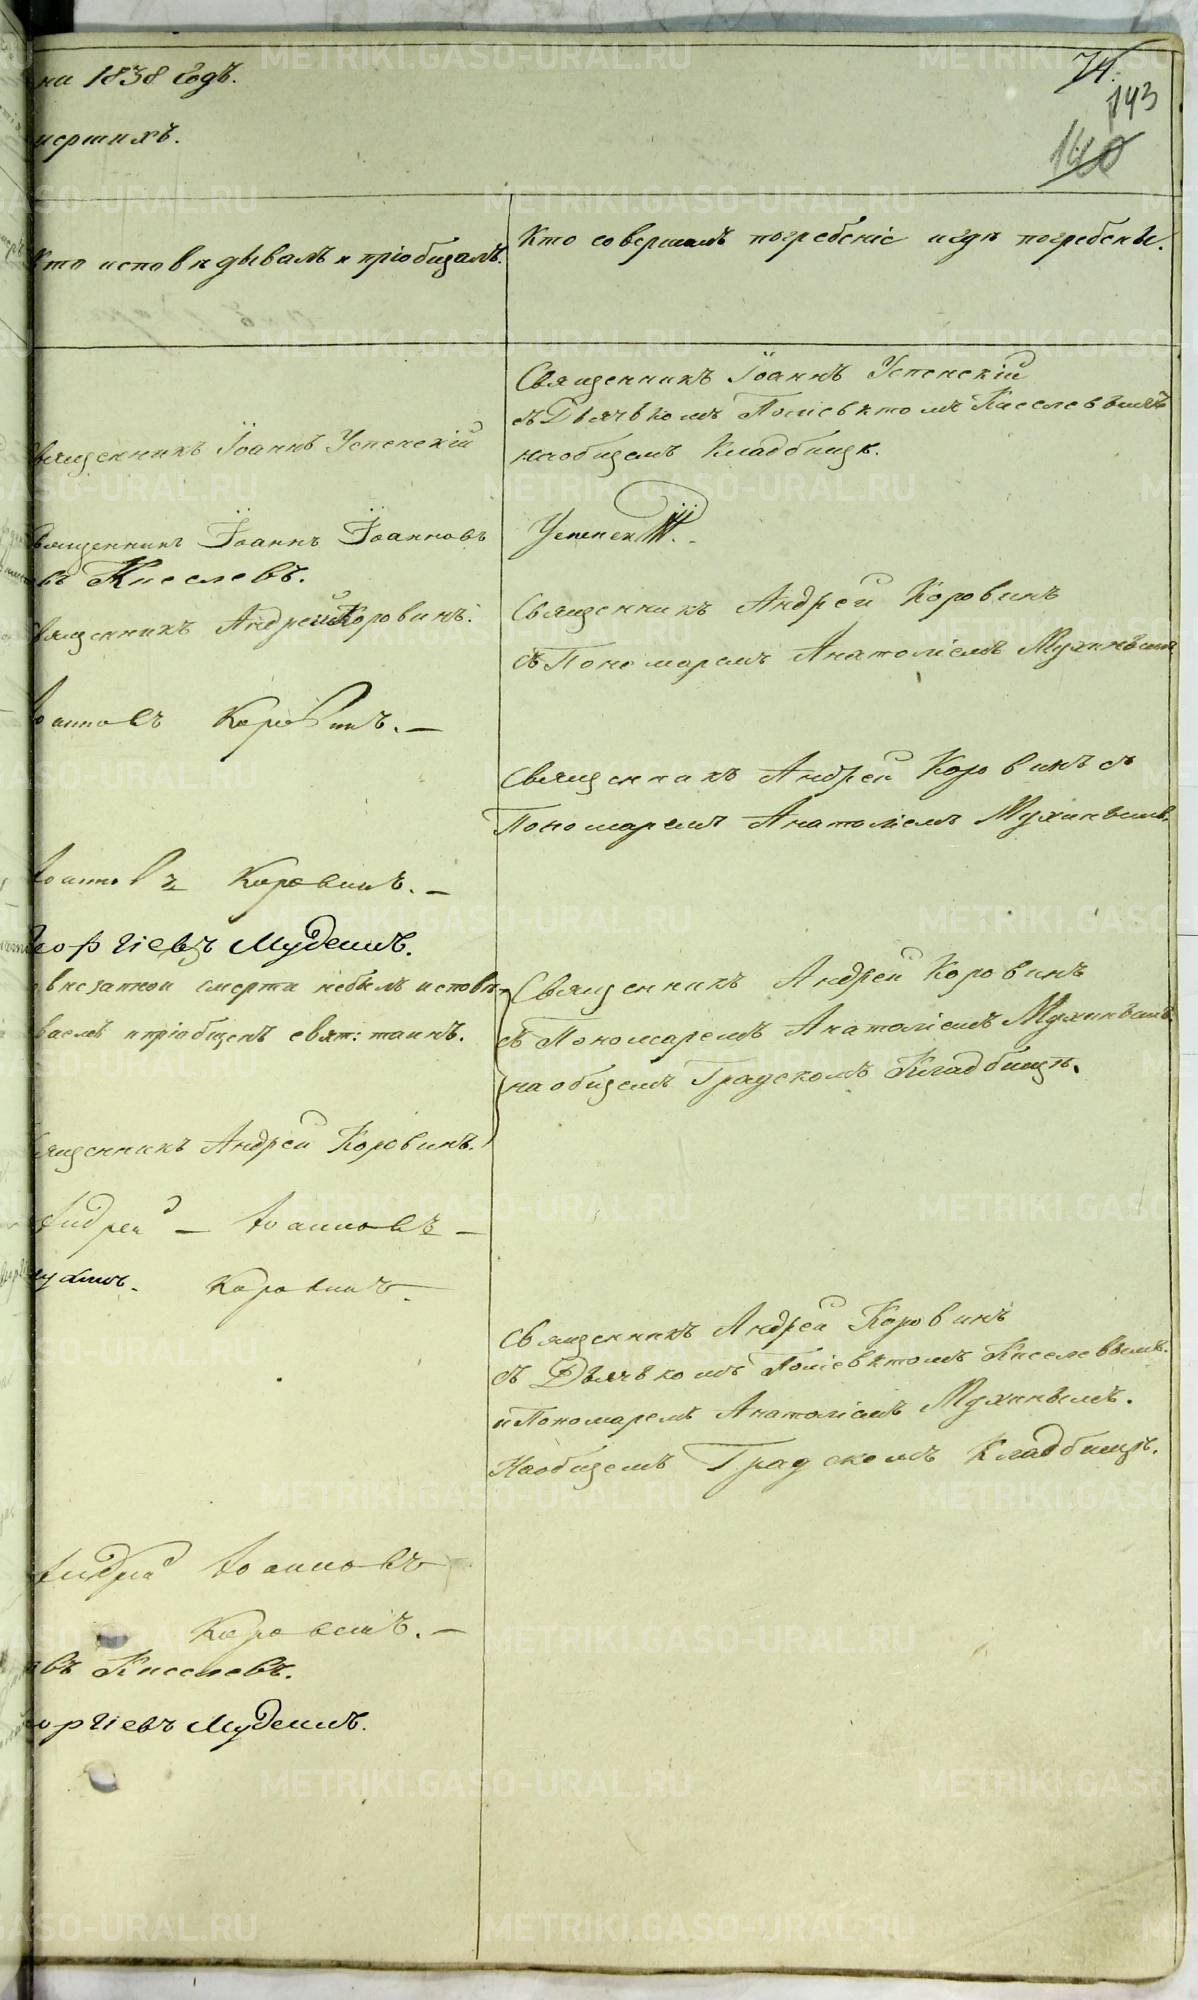 на 1838 годъ.
74.
143
140
мершихъ.
Кто исповѣдывалъ и пріобщалъ.
Кто совершалъ погребеніе и гдѣ погребены.
Священникъ Іоаннъ Успенскій
съ Дьячькомъ Поліевктомъ Киселевымъ
на общемъ Кладбищѣ.
вященникъ Іоаннъ Успенскій
вященникъ Іоаннъ Іоанновъ
Успенскій.
въ Киселевъ.
вященникъ Андрей Коровинъ.
Священникъ Андрей Коровинъ
съ Пономаремъ Анатоліемъ Мухинымъ
Іоанновъ Коровинъ.
Священникъ Андрей Коровинъ съ
Пономаремъ Анатоліемъ Мухинымъ.
Іоанновъ Коровинъ.
еоргіевъ
внезапной смерти небылъ исповѣ-
ваемъ и пріобщенъ свят: таинъ.
Священникъ Андрей Коровинъ
съ Пономаремъ Анатоліемъ Мухинымъ
на общемъ Градскомъ Кладбищѣ.
вященникъ Андрей Коровинъ.
Андрей Іоанновъ
Коровинъ.
Священникъ Андрей Коровинъ
съ Дьячькомъ Поліевктомъ Киселевымъ.
и Пономаремъ Анатоліемъ Мухинымъ.
На общемъ Градскомъ Кладбищѣ.
Андрей Іоанновъ
Коровинъ.
въ Киселевъ.
оргіевъ
METRIKI.GASO-URAL.RU